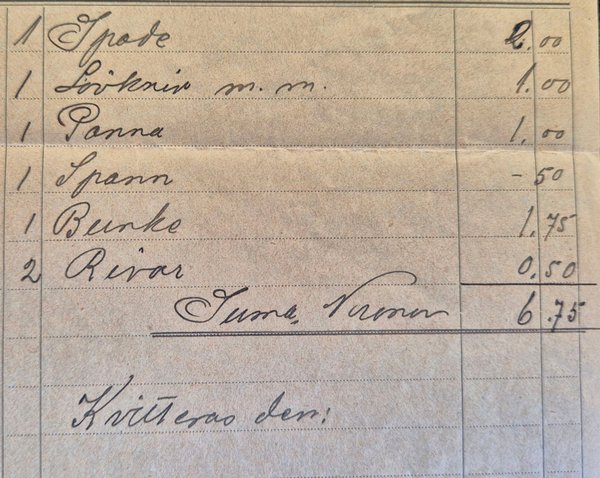 1 Spade 2.00
1 Lövkniv m.m. 1.00
1 Panna 1.00
1 Spann - 50
1 Bunke 1.75
2 Rivar 0.50
Suma, Kronor 6.75
Kvitteras den: